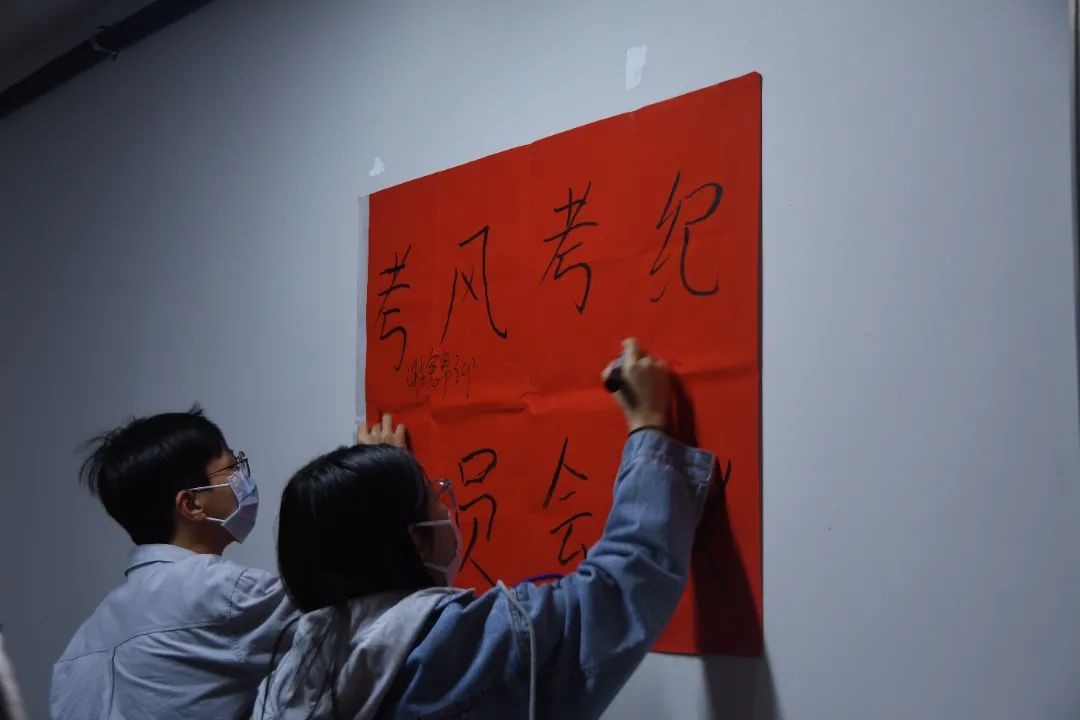 考风考纪
员会